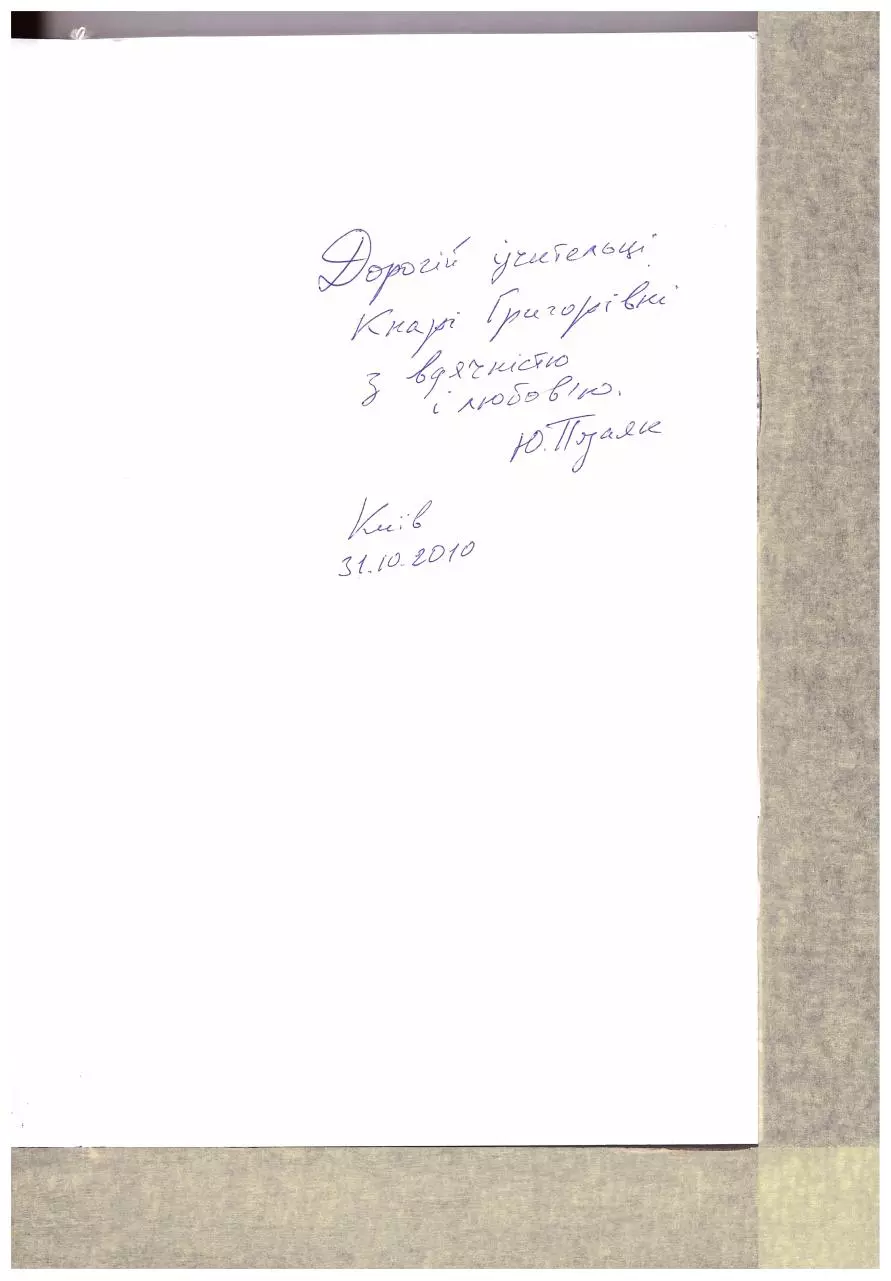 Дорогій учительці
Кнарі Григорівні
з вдячністю
і любов'ю.
Ю.
Київ
31.10.2010